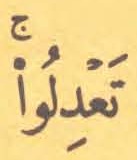 تَعْدِلُوا۟ ۚ